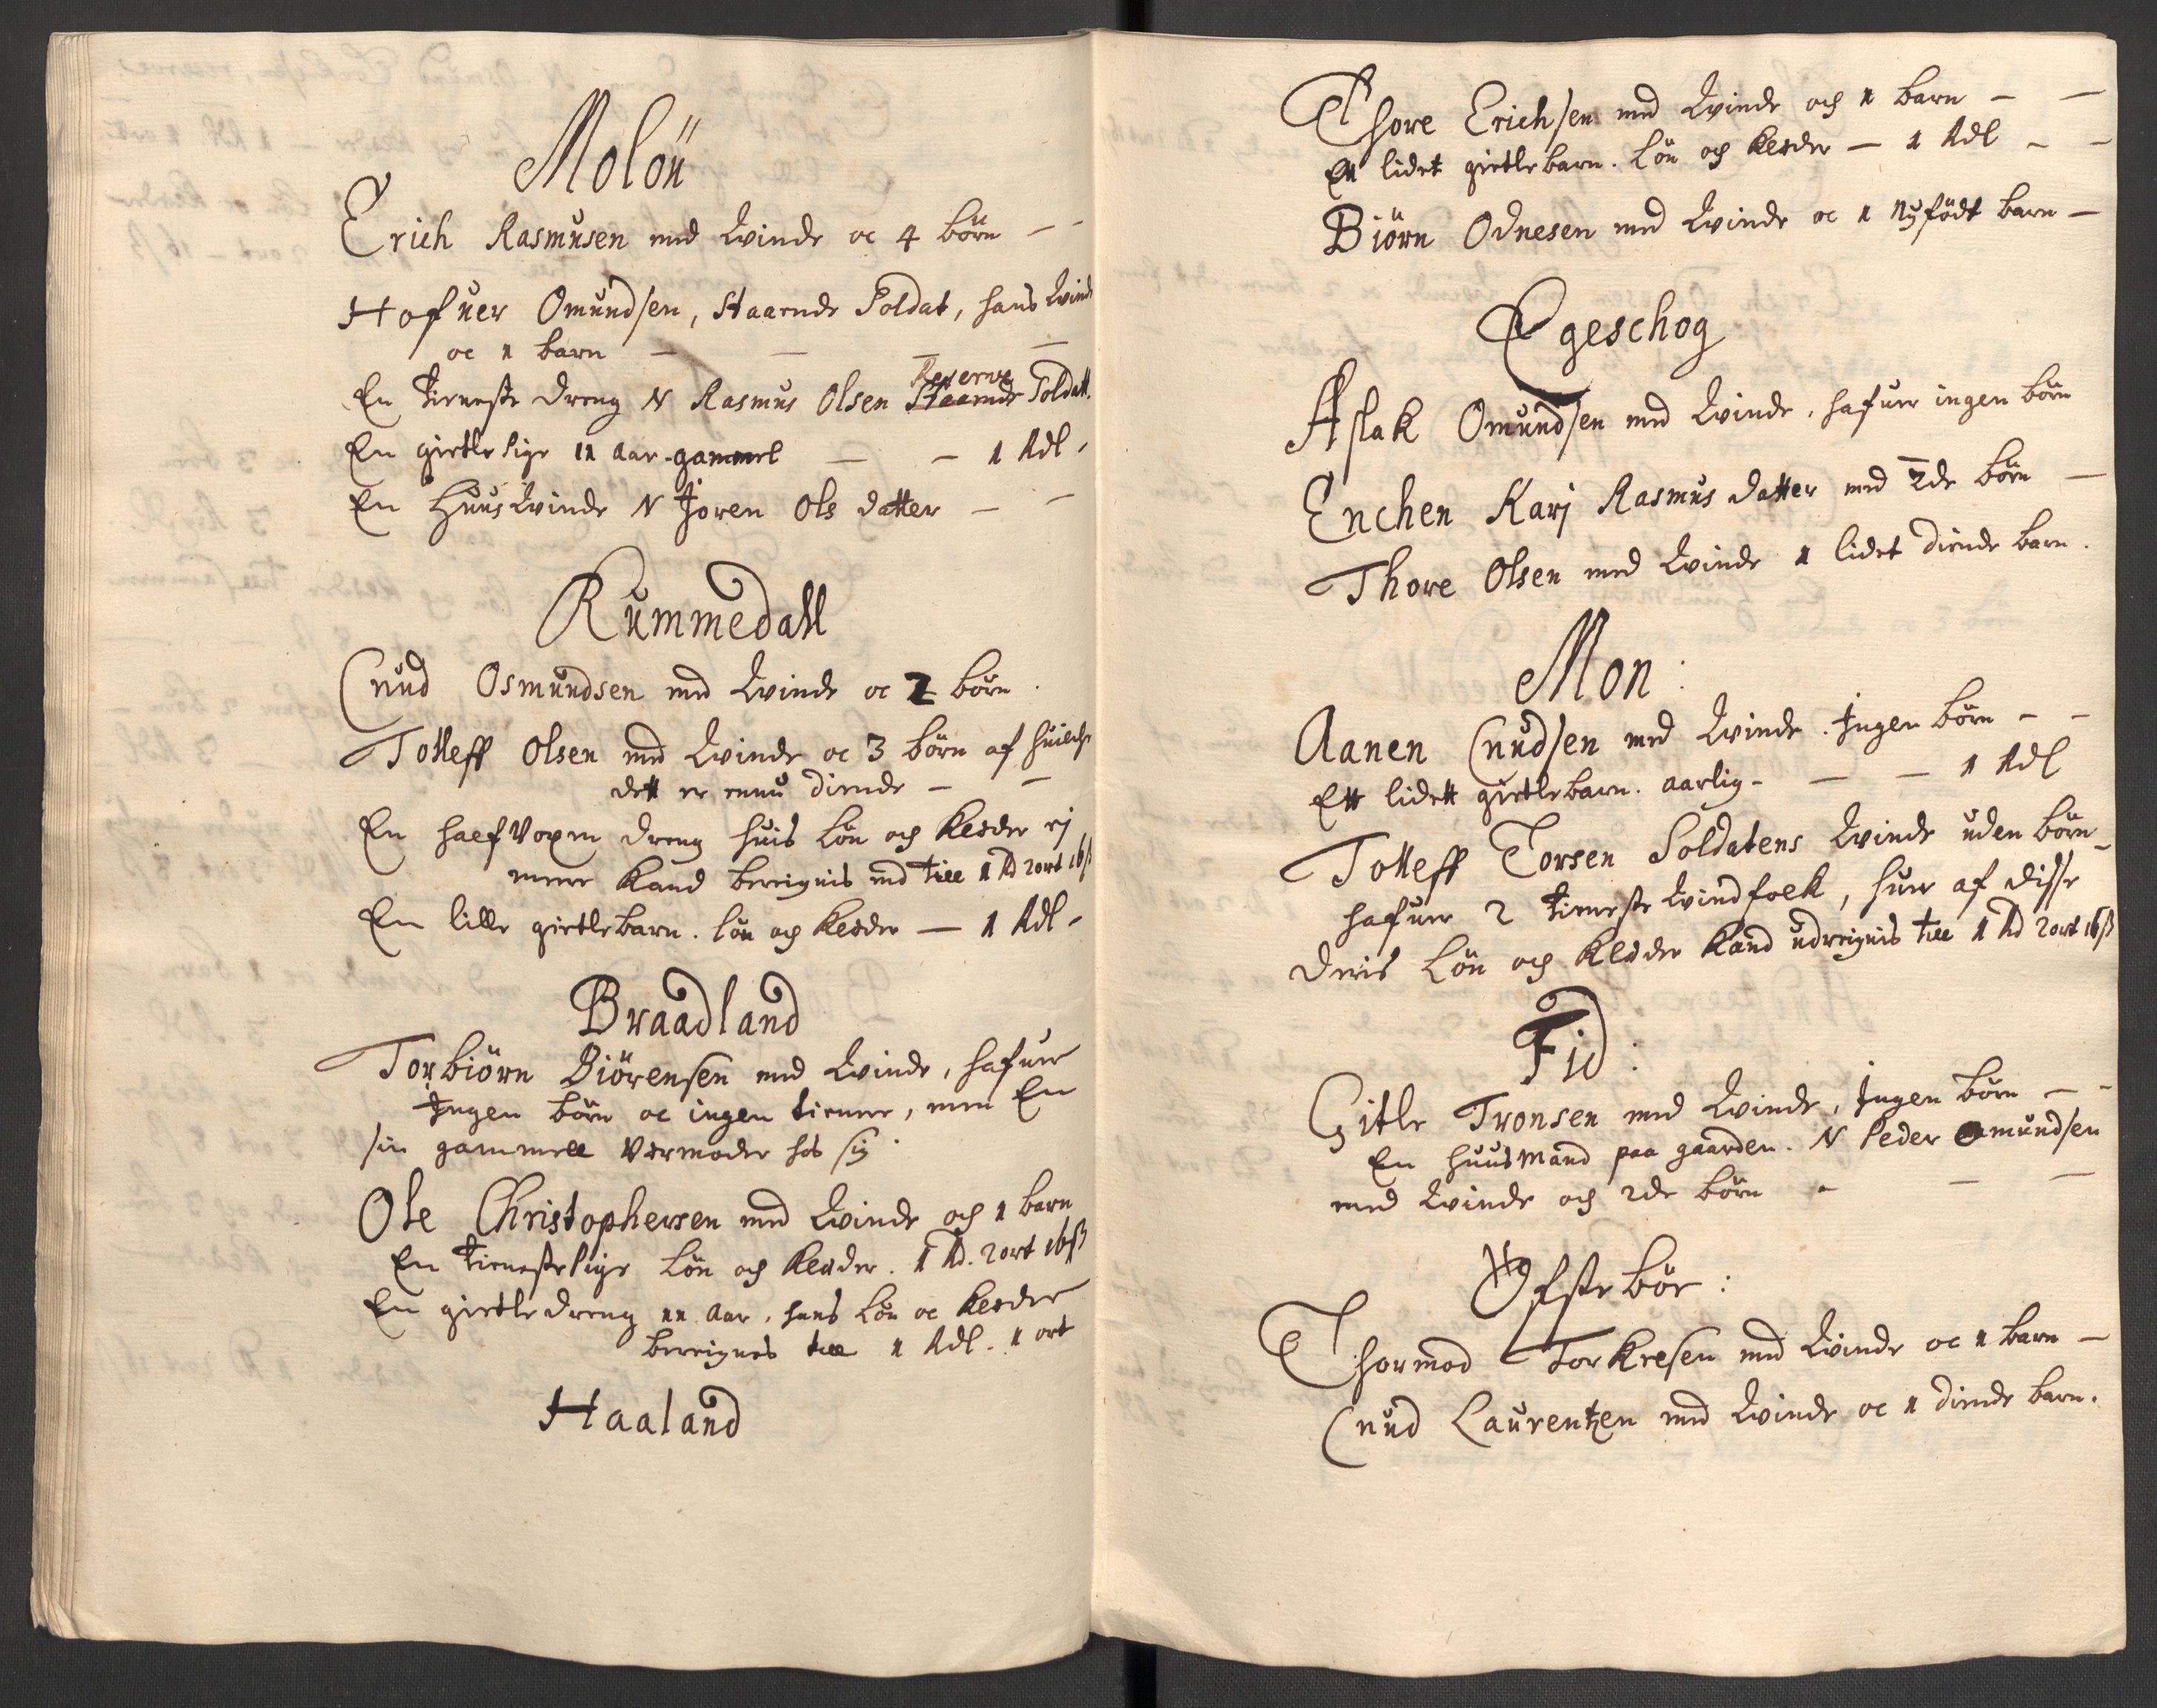 Molön
Erich Rasmusen med Qvinde oc 4 börn - -
Hofuer Omundsen, Staaende Soldat, hans Qvinde
oc 1 barn - - - -
Reserve
En tieneste dreng N Rasmus Olsen Staaende Soldatt.
En gietle pige 11 aar gammel - - 1 Rdl -
En Huus Qvinde N Joren Ols datter - -
Rummedall
Cnud Osmundsen med Qvinde oc 2 börn.
Tolleff Olsen med Qvinde oc 3 börn af huilche
dett er ennu diende - -
En half voxen dreng huis lön och kleder ej
mere kand bereignis end till 1 Rd 2 ort 16 ß
En lille gietlebarn. lön og kleder - 1 Rdl -
Braadland
Torbiörn Biörensen med Qvinde, hafuer
Ingen börn oc ingen tienner, men En
sin gammell Vermoder hos sig.
Ole Christophersen med Qvinde och 1 barn
En tieneste pige lön och kleder. 1 Rd. 2 ort 16 ß
En gietledreng 11 aar, hans lön oc kleder
bereignes till 1 Rdl. 1 ort
Haaland
Thore Erichsen med Qvinde och 1 barn - -
Et lidet gietlebarn. lön og kleder - 1 Rdl - -
Biörn Odnesen med Qvinde oc 1 nyfödt barn -
Egeschog
Aslak Omundsen med Qvinde, hafuer ingen börn
Enchen Karj Rasmus datter med 2de börn -
Thore Olsen med Qvinde 1 lidet diende barn.
Mon:
Aanen Cnudsen med Qvinde. Ingen börn - -
Ett lidett gietlebarn. aarlig - - - 1 Rdl
Tolleff Torsen Soldatens Qvinde uden börn -
hafuer 2 tieneste Qvindfolk, huer af disse
deris lön och kleder kand udreignis till 1 Rd 2 ort 16 ß
Fid:
Gitle Tronsen med Qvinde, Ingen börn - -
En huusmand paa gaarden. N Peder Omundsen
med Qvinde och 2de börn - - -
Öfstebör:
Thormod Torkresen med Qvinde oc 1 barn -
Cnud Laurentzen med Qvinde oc 1 diende barn.